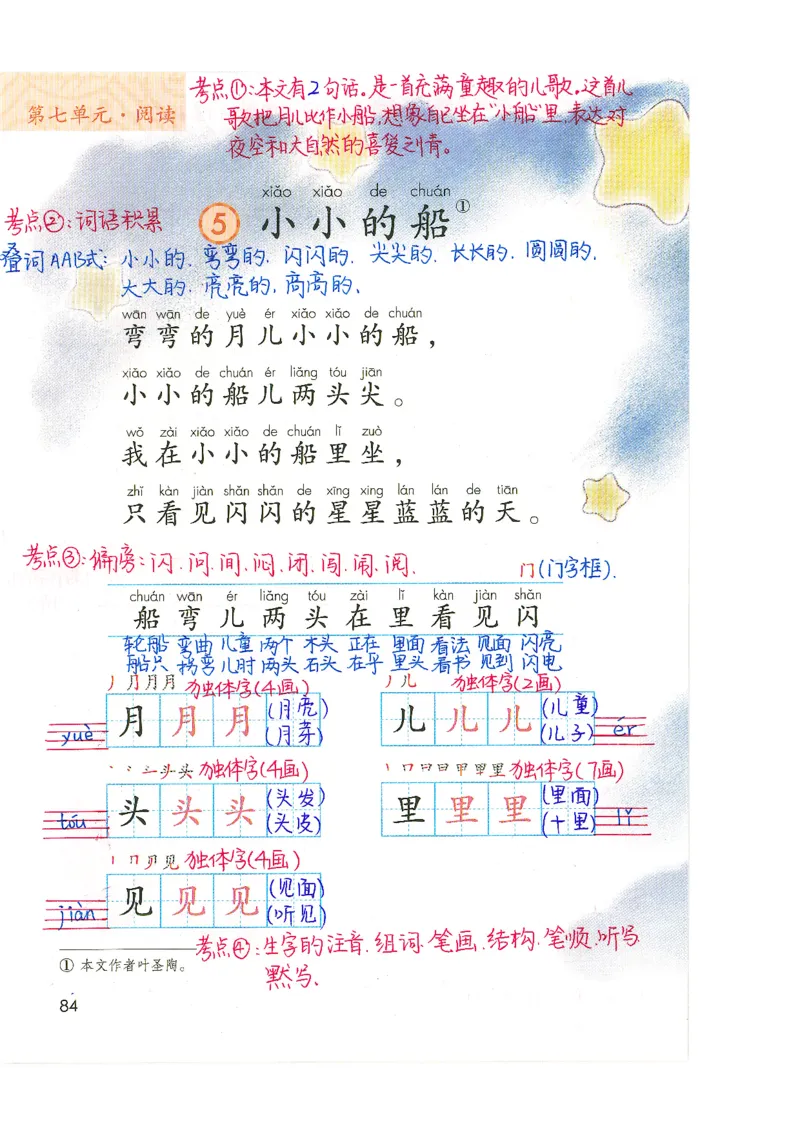 考点①:本文有2句话。是一首充满童趣的儿歌。这首儿
第七单元·阅读
歌把月儿比作小船,想象自己坐在“小船”里,表达对
夜空和大自然的喜爱之情。
xiǎo xiǎo de chuán
考点②:词语积累
5 小小的船①
叠词AAB式:小小的.弯弯的.闪闪的.尖尖的.长长的.圆圆的.
大大的.亮亮的.高高的、
wān wān de yuè ér xiǎo xiǎo de chuán
弯弯的月儿小小的船,
xiǎo xiǎo de chuán ér liǎng tóu jiān
小小的船儿两头尖。
wǒ zài xiǎo xiǎo de chuán lǐ zuò
我在小小的船里坐,
zhǐ kàn jiàn shǎn shǎn de xīng xing lán lán de tiān
只看见闪闪的星星蓝蓝的天。
考点③:偏旁:闪.问.间.闷.闭.闯.闹.阅.
门(门字框).
chuán wān ér liǎng tóu zài lǐ kàn jiàn shǎn
船 弯 儿 两 头 在 里 看 见 闪
轮船 弯曲 儿童 两个 木头 正在 里面 看法 见面 闪亮
船只 拐弯 儿时 两头 石头 在乎 里头 看书 见到 闪电
独体字(4画) 独体字(2画)
yuè 月 月 月 (月亮) 儿 儿 儿 (儿童) ér
(月芽) (儿子)
独体字(4画) 独体字(7画)
tóu 头 头 头 (头发) 里 里 里 (里面) lǐ
(头皮) (十里)
独体字(4画)
jiàn 见 见 见 (见面)
(听见)
考点④:生字的注音.组词.笔画.结构.笔顺.听写
① 本文作者叶圣陶。
默写、
84